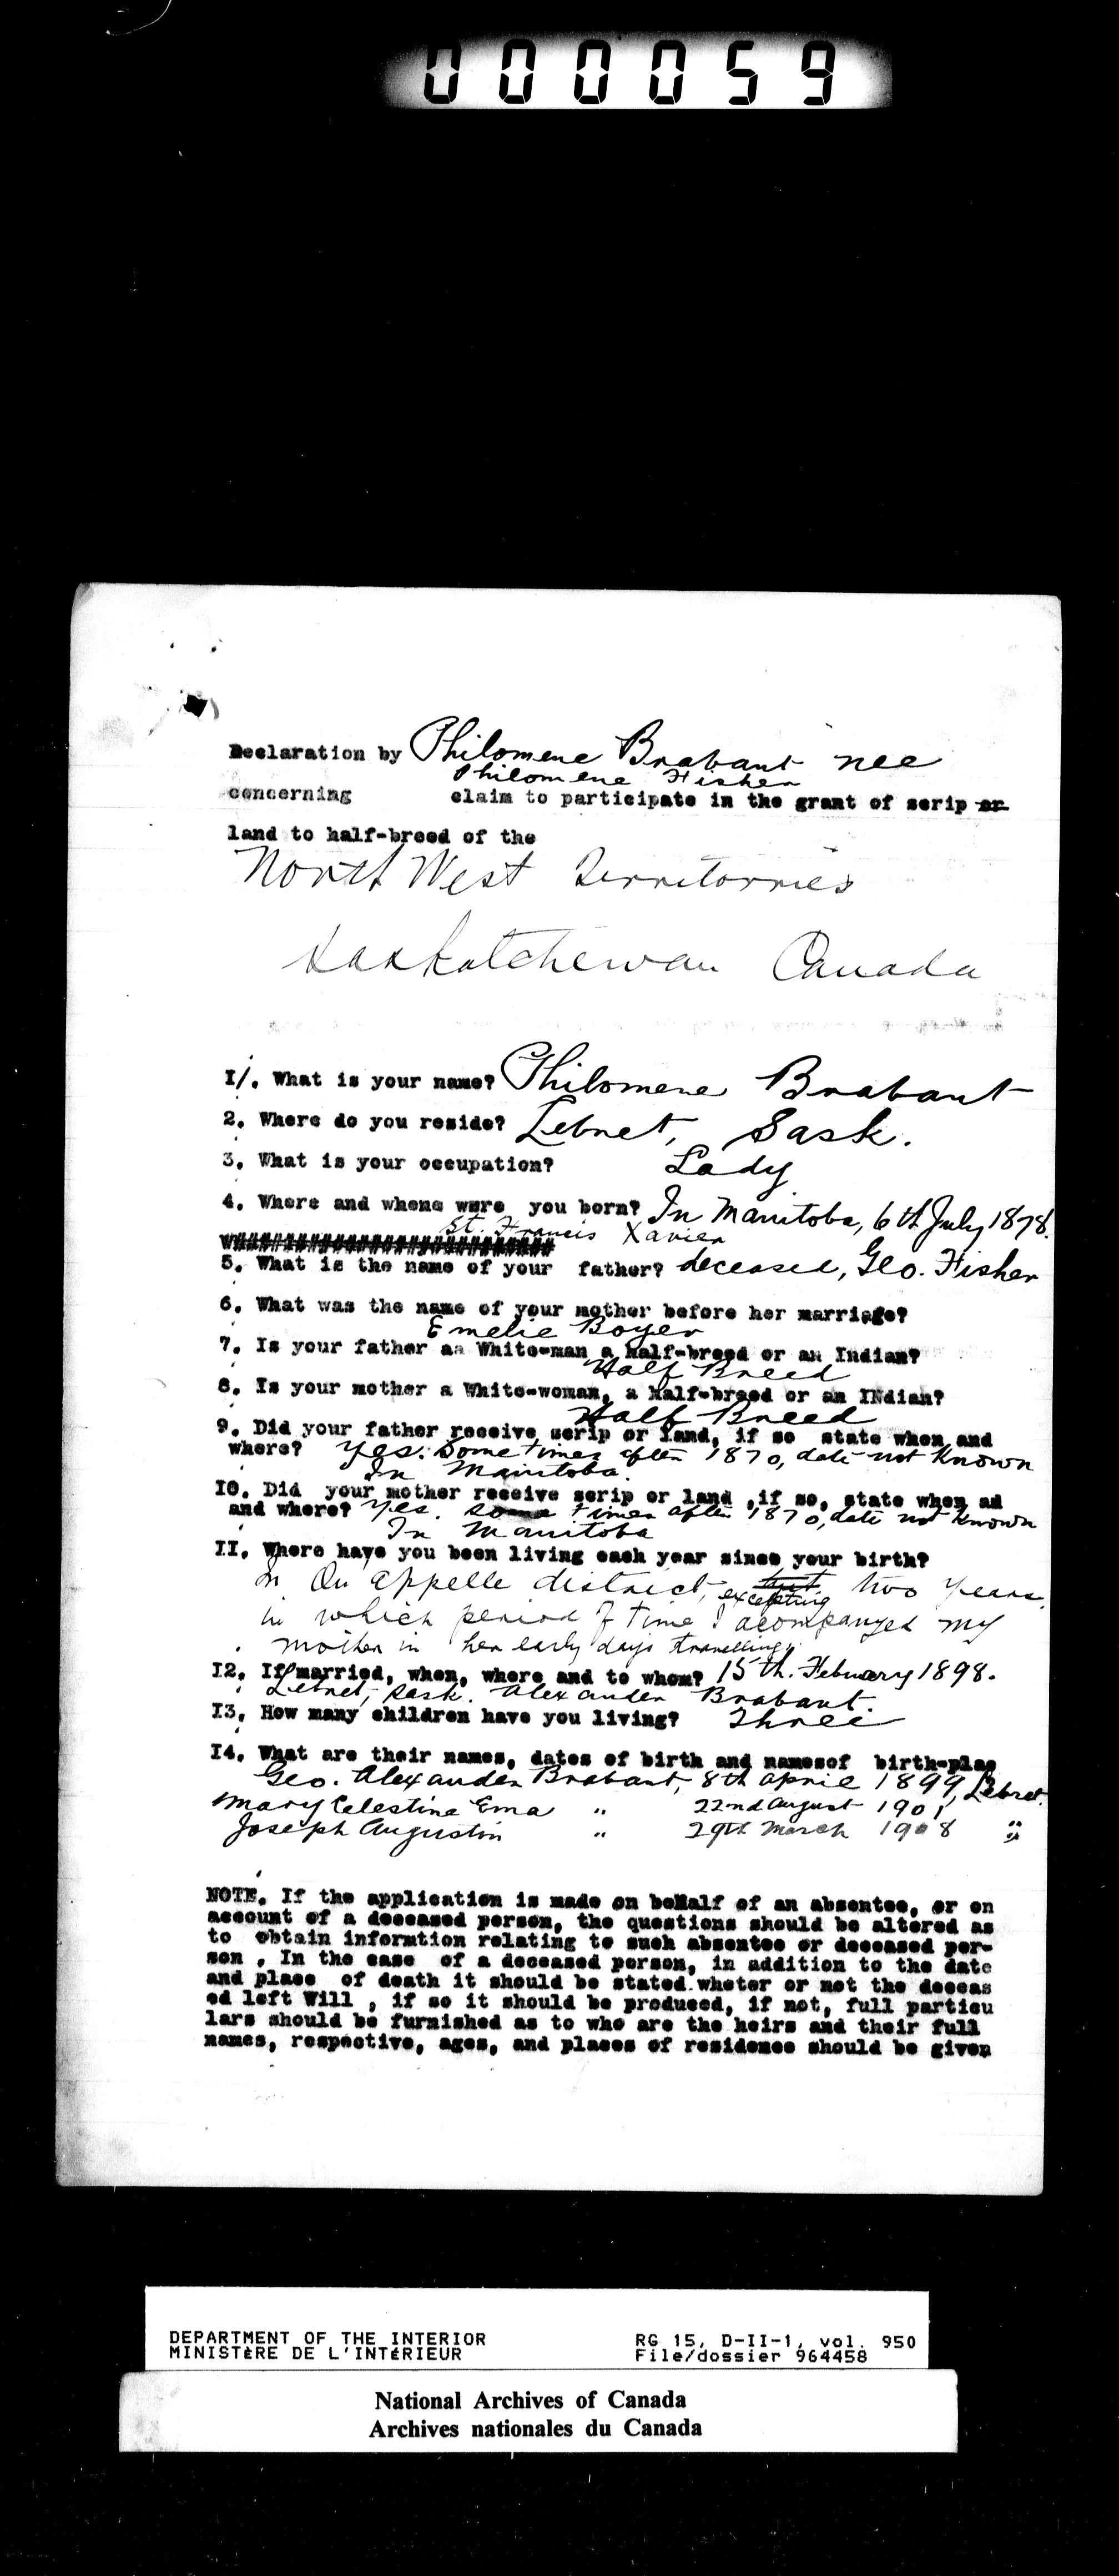 000059
Declaration by Philomene Brabant nee
Philomene Fisher
concerning claim to participate in the grant of scrip or
land to half-breed of the
North West Territorries
Saskatchewan Canada
I/. What is your name? Philomene Brabant
2. Where do you reside? Lebret, Sask.
3. What is your occupation? Lady
4. Where and whene were you born? In Manitoba, 6th July 1878.
St. Francis Xavier
5. What is the name of your father? deceased, Geo. Fisher
6. What was the name of your mother before her marriage?
Emelie Boyer
7. Is your father aa White-man a Half-breed or an Indian?
Half Breed
8. Is your mother a White-woman, a Half-breed or an INdian?
Half Breed
9. Did your father receive scrip or land, if so state when and
where? Yes. Some times after 1870, date not Known
In Manitoba.
I0. Did your mother receive scrip or land ,if so, state when ad
and where? Yes. some times after 1870, date not Known
In Manitoba
II. Where have you been living each year since your birth?
In Qu'appelle district, but excepting two years,
in which period of time I acompanyed my
mother in her early days travelling.
I2. If married, when, where and to whom? 15th. Febuary 1898.
Lebret, Sask. Alexander Brabant.
I3. How many children have you living? Three
I4. What are their names, dates of birth and namesof birth-plac
Geo. Alexander Brabant, 8th April 1899, Lebret.
Mary Celestina Ema " 22nd August 1901, "
Joseph Augustin " 29th March 1908 "
NOTE. If the application is made on beHalf of an absentee, or on
account of a deceased person, the questions should be altered as
to obtain informtion relating to such absentee or deceased per-
son , In the case of a deceased person, in addition to the date
and place of death it should be stated.wheter or not the deceas
ed left Will , if so it should be produced, if not, full particu
lars should be furnished as to who are the heirs and their full
names, respective, ages, and places of residence should be given
DEPARTMENT OF THE INTERIOR RG 15, D-II-1, vol. 950
MINISTÈRE DE L'INTÉRIEUR File/dossier 964458
National Archives of Canada
Archives nationales du Canada